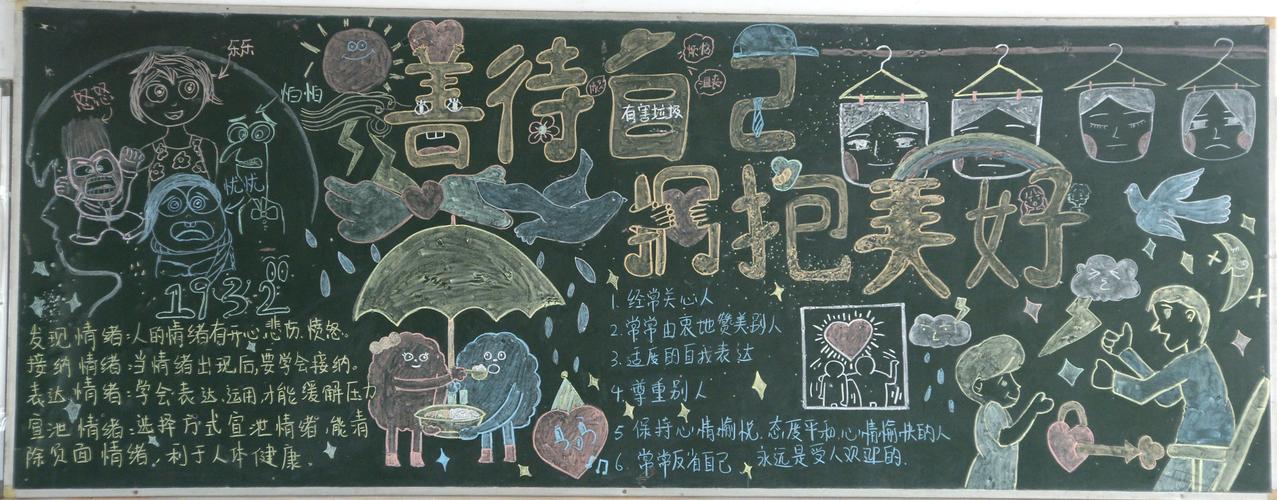 善待自己
拥抱美好
有害垃圾
乐乐
怒怒
怕怕
忧忧
烦恼
沮丧
1932
发现情绪:人的情绪有开心.悲伤.愤怒。
接纳情绪:当情绪出现后,要学会接纳。
表达情绪:学会表达.运用.才能缓解压力
宣泄情绪:选择方式宣泄情绪.能清
除负面情绪,利于人体健康.
1. 经常关心人
2. 常常由衷地赞美别人
3. 适度的自我表达
4. 尊重别人
5 保持心情愉悦.态度平和.心情愉快的人
6. 常常反省自己、永远是受人欢迎的.